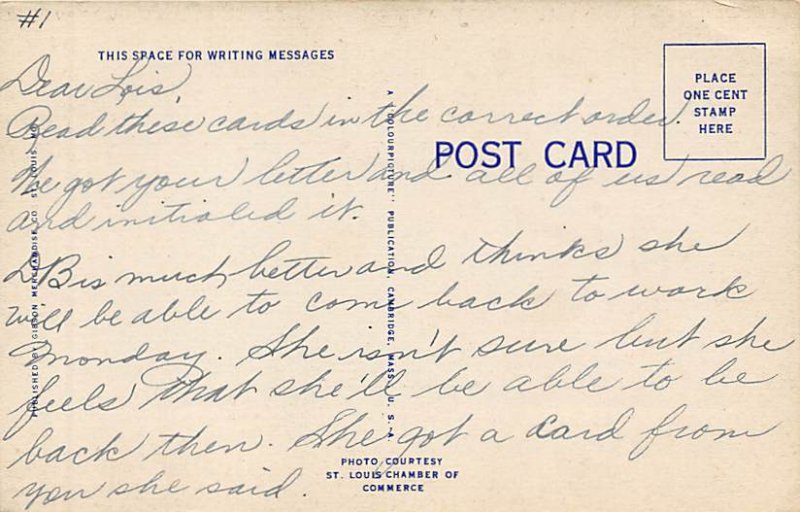 #1
THIS SPACE FOR WRITING MESSAGES
Dear Lois,
Read these cards in the correct order.
We got your letter and all of us read
and initialed it.
DB is much better and thinks she
will be able to come back to work
Monday. She isn't sure but she
feels that she'll be able to be
back then. She got a card from
you she said.
POST CARD
PLACE
ONE CENT
STAMP
HERE
PUBLISHED BY GIBSON MERCHANDISE CO. ST. LOUIS, MO.
A "COLOURPICTURE" PUBLICATION, CAMBRIDGE, MASS., U. S. A.
PHOTO COURTESY
ST. LOUIS CHAMBER OF
COMMERCE